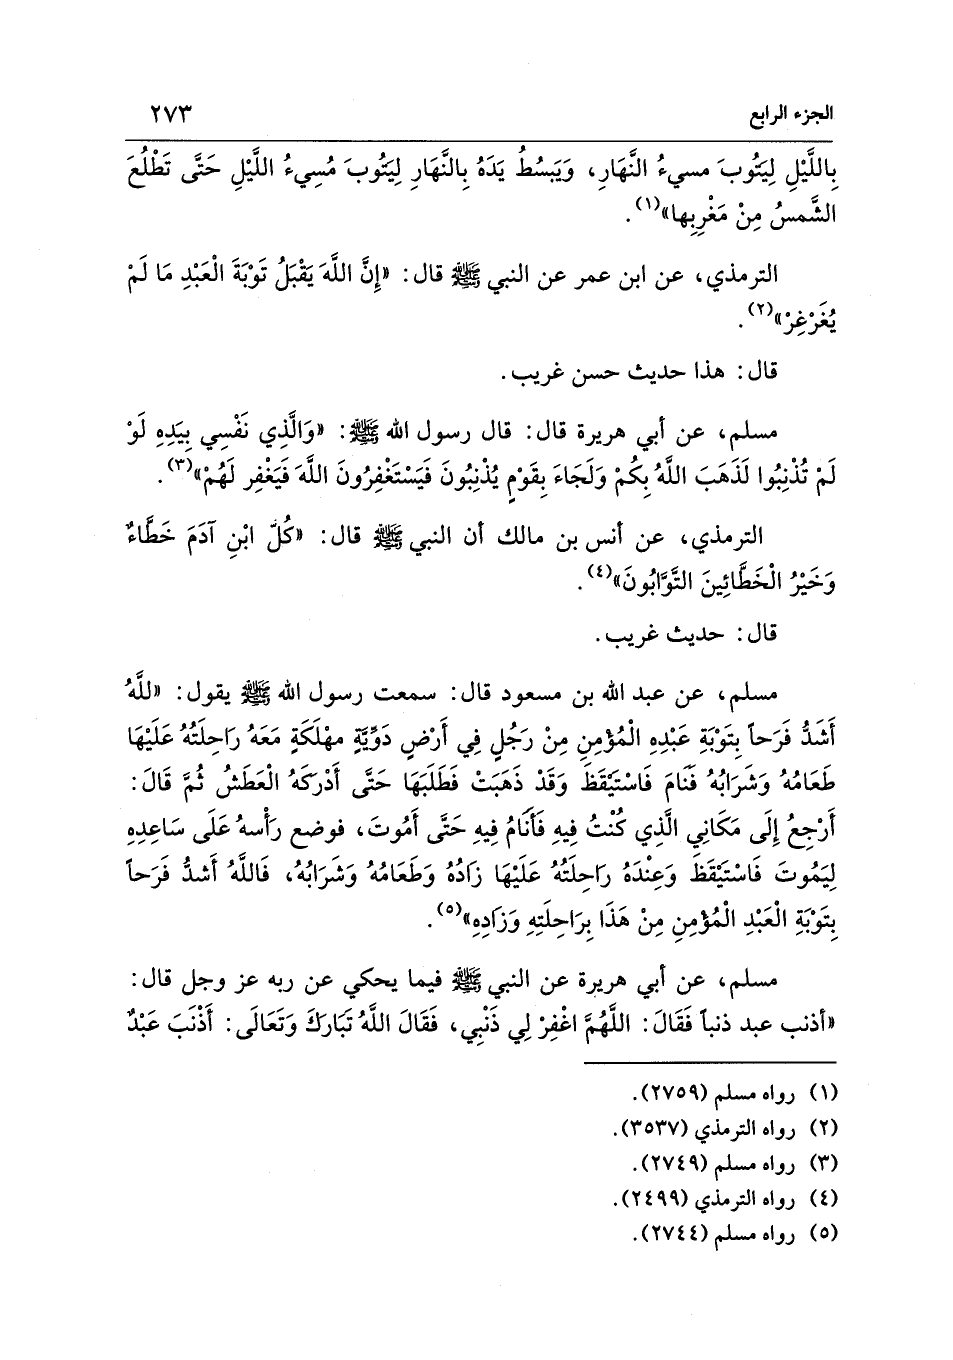 الجزء الرابع ٢٧٣
بِاللَّيْلِ لِيَتُوبَ مسيءُ النَّهَارِ، وَيَبسُطُ يَدَهُ بِالنَّهَارِ لِيَتُوبَ مُسِيءُ اللَّيْلِ حَتَّى تَطْلُعَ
الشَّمسُ مِنْ مَغْرِبِها»(١).
الترمذي، عن ابن عمر عن النبي ﷺ قال: «إِنَّ اللَّهَ يَقْبَلُ تَوْبَةَ الْعَبْدِ مَا لَمْ
يُغَرْغِرْ»(٢).
قال: هذا حديث حسن غريب.
مسلم، عن أبي هريرة قال: قال رسول الله ﷺ: «وَالَّذِي نَفْسِي بِيَدِهِ لَوْ
لَمْ تُذْنِبُوا لَذَهَبَ اللَّهُ بِكُمْ وَلَجَاءَ بِقَوْمٍ يُذْنِبُونَ فَيَسْتَغْفِرُونَ اللَّهَ فَيَغْفِر لَهُمْ»(٣).
الترمذي، عن أنس بن مالك أن النبي ﷺ قال: «كُلّ ابْنِ آدَمَ خَطَّاءٌ
وَخَيْرُ الْخَطَّائِينَ التَّوَّابُونَ»(٤).
قال: حديث غريب.
مسلم، عن عبد الله بن مسعود قال: سمعت رسول الله ﷺ يقول: «للَّهُ
أَشَدُّ فَرَحاً بِتَوْبَةِ عَبْدِهِ الْمُؤْمِنِ مِنْ رَجُلٍ فِي أَرْضٍ دَوِّيَّةٍ مهْلَكَةٍ مَعَهُ رَاحِلَتُهُ عَلَيْهَا
طَعَامُهُ وَشَرَابُهُ فَنَامَ فَاسْتَيْقَظَ وَقَدْ ذَهَبَتْ فَطَلَبَهَا حَتَّى أَدْرَكَهُ الْعَطَشُ ثُمَّ قَالَ:
أَرْجِعُ إِلَى مَكَانِي الَّذِي كُنْتُ فِيهِ فَأَنَامُ فِيهِ حَتَّى أَمُوتَ، فوضع رَأْسهُ عَلَى سَاعِدِهِ
لِيَمُوتَ فَاسْتَيْقَظَ وَعِنْدَهُ رَاحِلَتُهُ عَلَيْهَا زَادُهُ وَطَعَامُهُ وَشَرَابُهُ، فَاللَّهُ أَشدُّ فَرَحاً
بِتَوْبَةِ الْعَبْدِ الْمُؤْمِنِ مِنْ هَذَا بِرَاحِلَتِهِ وَزَادِهِ»(٥).
مسلم، عن أبي هريرة عن النبي ﷺ فيما يحكي عن ربه عز وجل قال:
«أذنب عبد ذنباً فَقَالَ: اللَّهُمَّ اغْفِرْ لِي ذَنْبِي، فَقَالَ اللَّهُ تَبَارَكَ وَتَعَالَى: أَذْنَبَ عَبْدٌ
(١) رواه مسلم (٢٧٥٩).
(٢) رواه الترمذي (٣٥٣٧).
(٣) رواه مسلم (٢٧٤٩).
(٤) رواه الترمذي (٢٤٩٩).
(٥) رواه مسلم (٢٧٤٤).